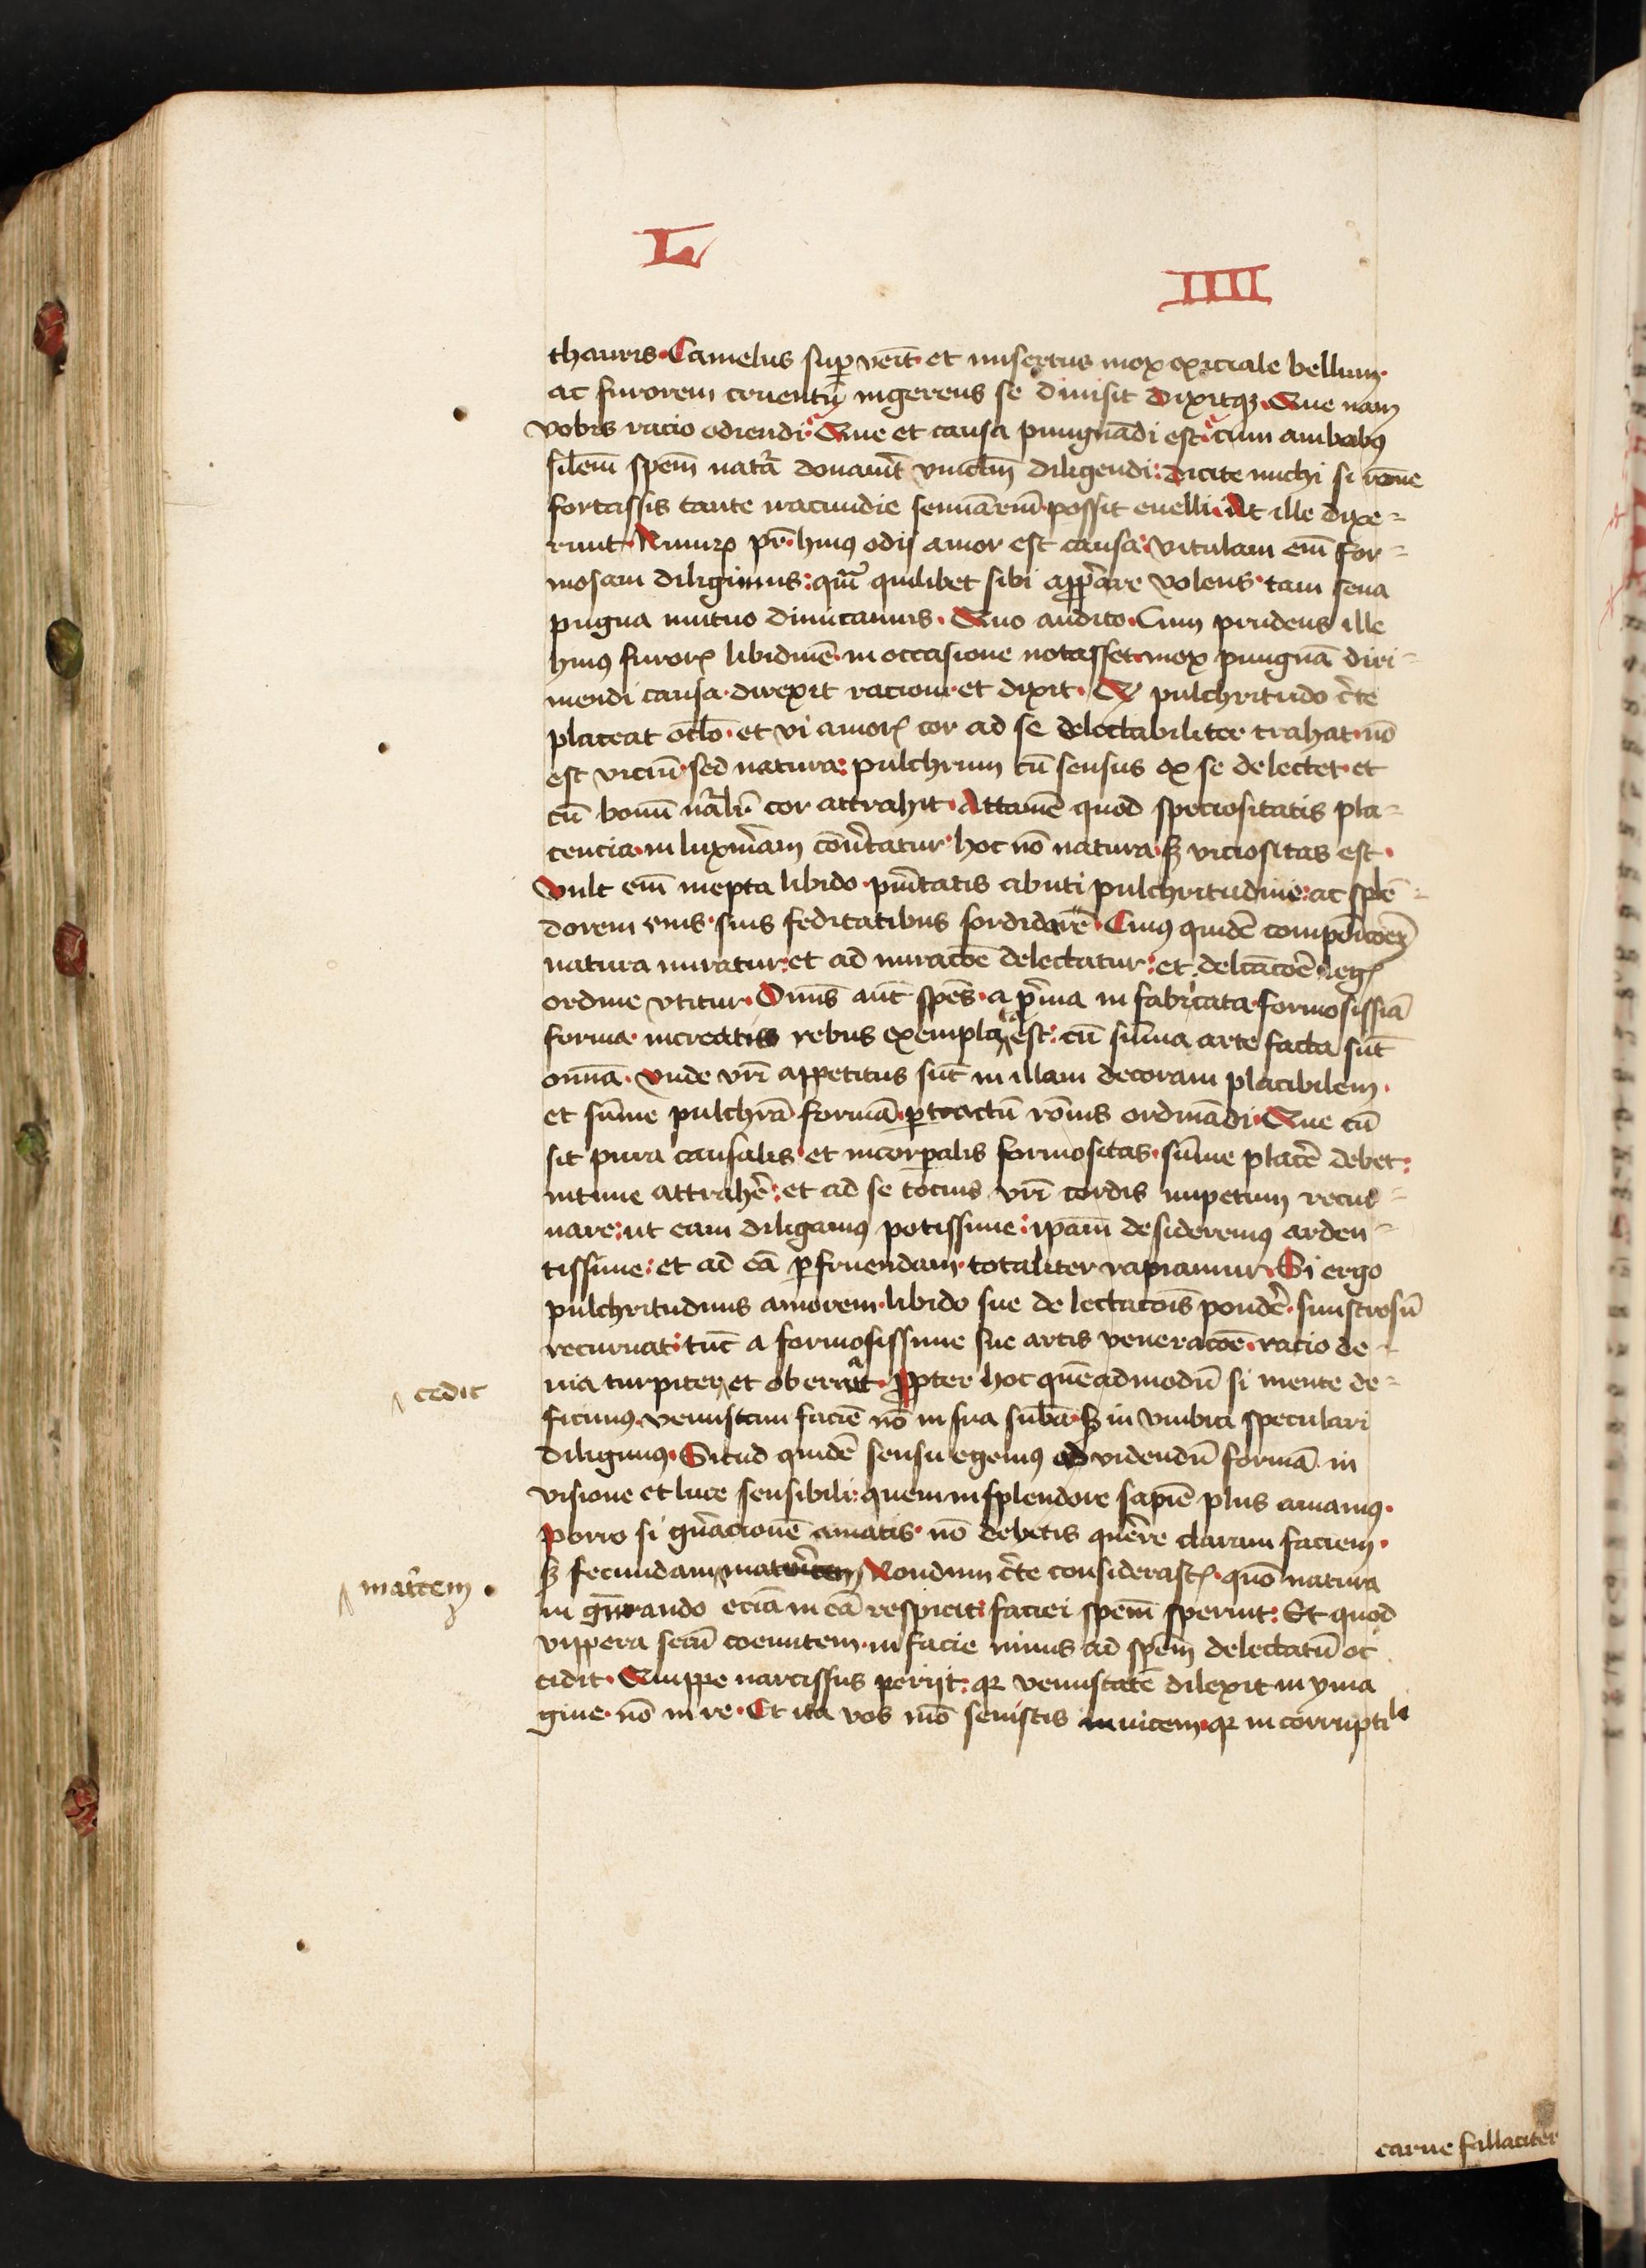 L
IIII
thauris. Camelus sup̱ venit̄. et misertus mox exiciale bellum.
ac furorem cruentū ingerens se diuisit dixitqꝫ. Que nam
vobis racio odiendi. Que et causa pungnādi est. cum ambabꝰ
silem̄ spem̄ natā donauit̄ diligendi: dicite michi si rōne
fortassis tante iracundie possit euelli. At ille dixe=
runt. pr̄. huiꝰ odij amor est causa: vitulam em̄ for=
mosam diligimus: quā quilibet sibi volens. tam seua
pugna mutuo dimicamus. Quo audito. Cum prudens ille
huiꝰ furorꝭ libidinē. in occasione notasset. mox pungnā diri=
mendi causa. direxit racionē. et dixit. Qꝫ pulchritudo c̄te
placeat oclō. et vi amorꝭ cor ad se delectabiliter trahat. nō
est viciū. sed natura: pulchrum cū sensus ex se delectet. et
cū bonū nāliṯ cor attrahit. Attamē quod speciositatis pla=
cencia. in luxuriam cōuertatur. hoc nō natura. sꝫ viciositas est.
Vult em̄ inepta libido. abuti pulchritudine: ac splē=
dorem eius. suis feditatibus sordidare. Cuiꝰ quidē
natura miratur: et ad miracōe delectatur: et delcācōe legꝭ
ordine vtitur. Omīs aut̄ spēs. a p̄ma in fabricata formosissiā
forma. increatis rebus exemplata est: cū sum̄a arte facta sūt
omīa. Vnde vr̄i appetitus sūt in illam decoram placibilem.
et sum̄e pulchrā formā. ꝑ tractū rōnis ordināndi. Que cū
sit pura causalis. et incorꝑalis formositas. sum̄e placē debet:
intime attrahē: et ad se tocius vr̄i cordis impetum recur=
nare: ut eam diligamꝰ potissime: ipam̄ desideremꝰ arden=
tissime: et ad eā ꝑfruendam. totaliter rapiamur. Si ergo
pulchritudinis amorem. libido sue delectacōis pondē. sinistrosū
recuruat: tūc a formosissime sue artis veneracōe. racio de=
uia turpiter et oberrat. ꝓpter hoc quēadmodū si mente de=
ficimꝰ. venustam faciē nō in sua subā. sꝫ in vmbra speculari
diligimꝰ. Sicud quidē sensu egemꝰ ad videndū formā in
visione et luce sensibili: quem in splendore sapiē plus amamꝰ.
Porro si gn̄acionē amatis. nō debetis quēre claram faciem.
sꝫ fecundam matricem Nondum c̄te considerastꝭ. quō natura
in gn̄rando eciā in eā respicit: faciei spem̄ spernit: Et quod
vippera secū coeuntem. in facie nimis ad spem̄ delectatū oc
cidit. Quippe narcissus perijt: qꝛ venustatē dilexit in yma
gine. nō in re. Et ita vos mō seuistis inuicem. qꝛ in corruptibi
cedit
matricem.
carne fallaciter